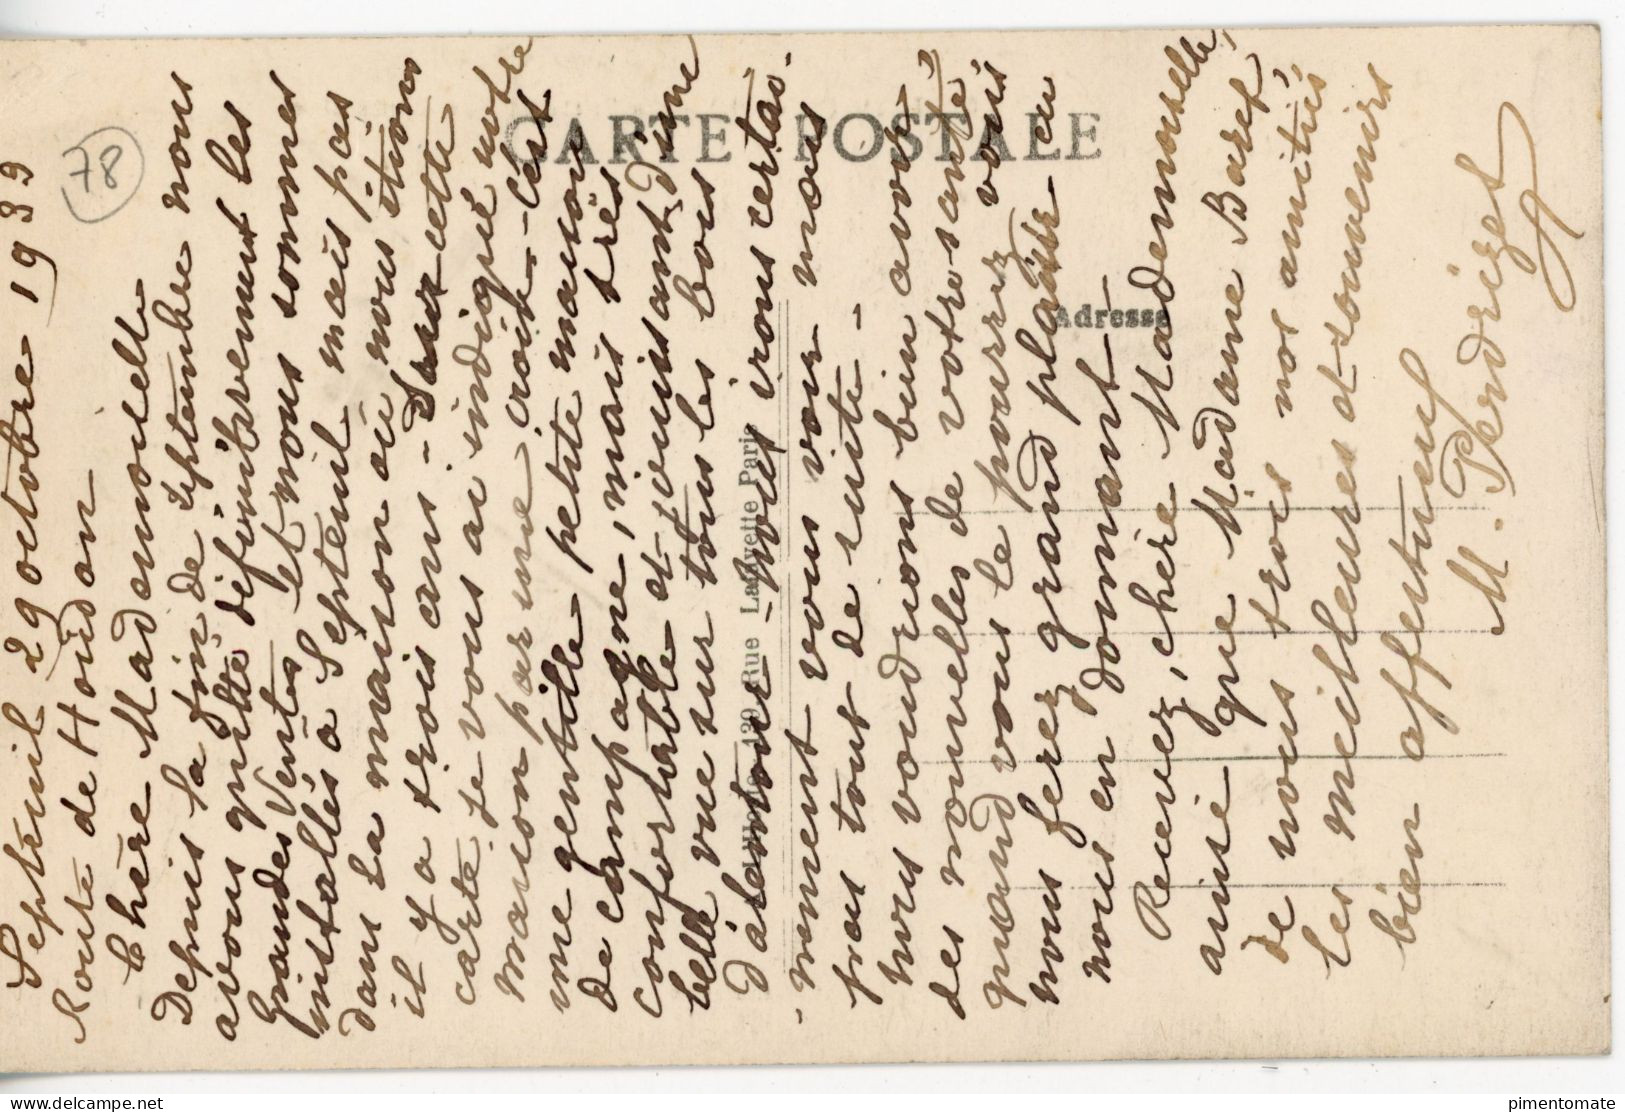 Septeuil 29 octobre 1939
Route de Houdan
Chère Mademoiselle
Depuis la fin de septembre nous
avons quitté définitivement les
Grandes Ventes et nous sommes
installés à Septeuil mais pas
dans la maison où nous étions
il y a trois ans. - Sur cette
carte je vous ai indiqué notre
maison par une croix. - C'est
une gentille petite maison
de campagne, mais très
confortable et jouissant d'une
belle vue sur tous les bois
d'alentour - Nous irons certai-
nement vous voir mais
pas tout de suite -
Nous voudrions bien avoir
des nouvelles de votre santé
quand vous le pourrez vous
nous ferez grand plaisir en
nous en donnant -
Recevez, chère Mademoiselle,
ainsi que Madame Baret
de nous trois nos amitiés
les meilleures et souvenirs
bien affectueux
M. Perdrizet
78
CARTE POSTALE
Adresse
139 Rue Lafayette Paris
delcampe.net
pimentomate